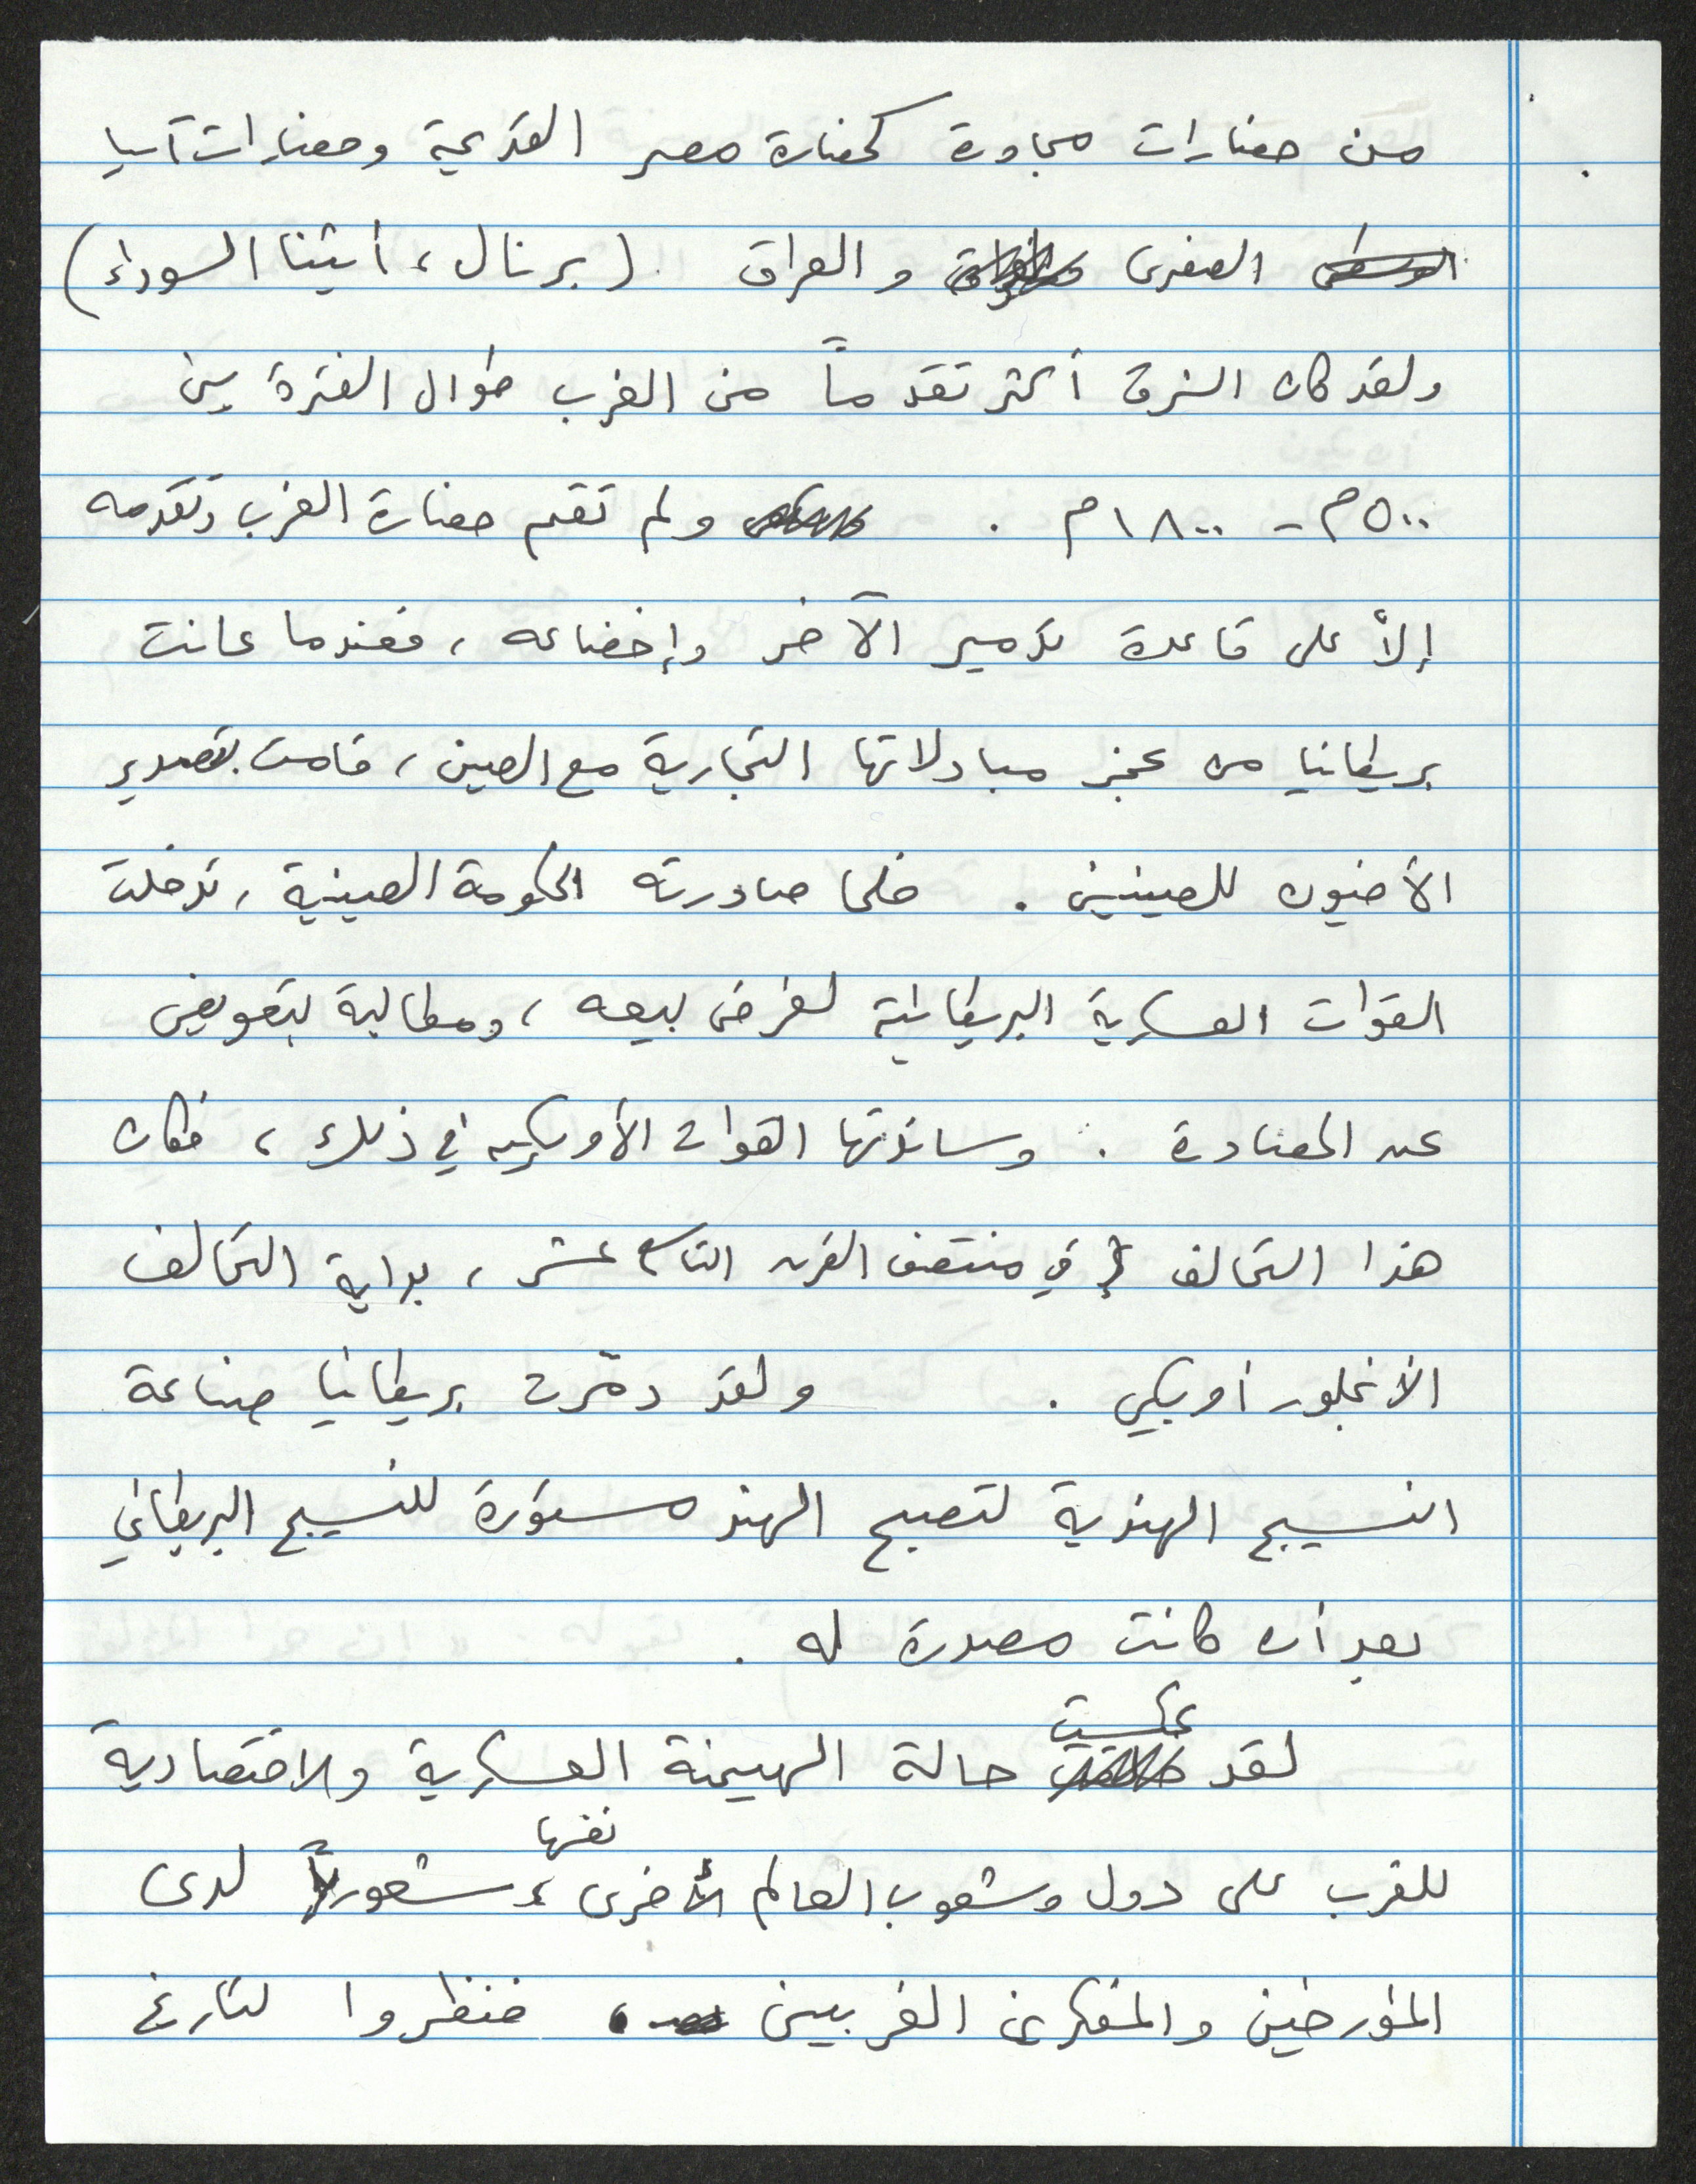 من حضارات مجاورة كحضارة مصر القديمة وحضارات آسيا
الوسطى الصغرى والعراق (برنال، أثينا السوداء)
ولقد كان الشرق أكثر تقدماً من الغرب طوال الفترة بين
٥٠٠م - ١٨٠٠م . ولم تقم حضارة الغرب وتقدمه
إلاّ على قاعدة تدمير الآخر وإخضاعه، فعندما عانت
بريطانيا من عجز مبادلاتها التجارية مع الصين، قامت بتصدير
الأفيون للصينيين. فلما صادرته الحكومة الصينية، تدخلت
القوات العسكرية البريطانية لفرض بيعه، ومطالبة بتعويض
عن المصادرة. وساندتها القوات الأمريكية في ذلك، فكان
هذا التحالف في منتصف القرن التاسع عشر، بداية التحالف
الأنجلور أمريكي. ولقد دمّرت بريطانيا صناعة
النسيج الهندية لتصبح الهند مستوردة للنسيج البريطاني
بعد أن كانت مصدرة له.
عكست
لقد حالة الهيمنة العسكرية والاقتصادية
نفسها
للغرب على دول وشعوب العالم الأخرى، شعورياً لدى
المؤرخين والمفكرين الغربيين، فنظروا لتاريخ